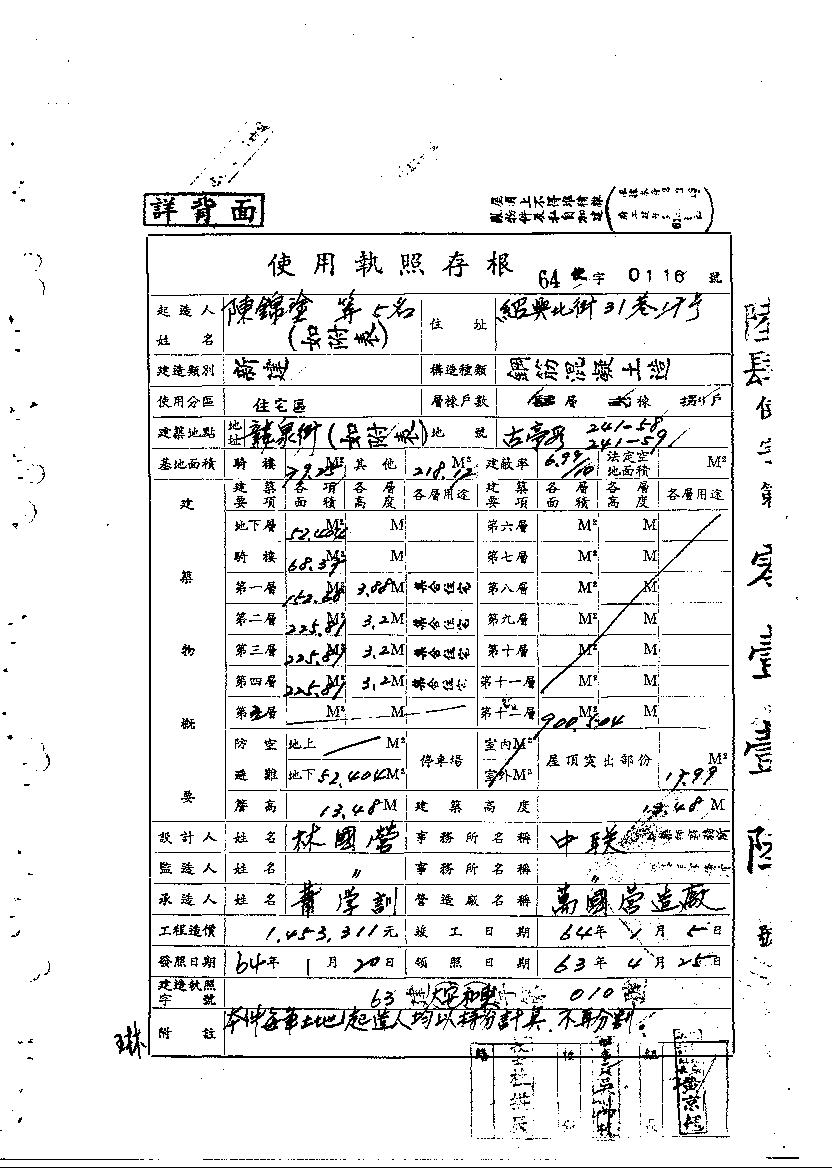 詳背面
屋頂上不得堆積雜
使用執照存根 64使字 0116 號
起造人姓名 陳錦塗 等5名 (如附表) 住址 紹興北街31巷17号
建造類別 新建 構造種類 鋼筋混凝土造
使用分區 住宅區 層棟戶數 層 棟 戶
建築地點 地址 龍泉街(如附表) 地號 古亭段 241-58 241-59
基地面積 騎樓 79.25 M² 其他 218.12 M² 建蔽率 6.99/10 法定空地面積 M²
建築物概要
建築要項 各項面積 各層高度 各層用途 建築要項 各層面積 各層高度 各層用途
地下層 52.404 M² M 第六層 M² M
騎樓 68.39 M² M 第七層 M² M
第一層 152.68 M² 3.88M 集合住宅 第八層 M² M
第二層 225.89 M² 3.2M 集合住宅 第九層 M² M
第三層 225.89 M² 3.2M 集合住宅 第十層 M² M
第四層 225.89 M² 3.2M 集合住宅 第十一層 M² M
第五層 M² M 第十二層 900.504 M² M
防空避難 地上 M² 地下 52.404M² 停車場 室內M² 室外M² 屋頂突出部份 17.99 M²
簷高 13.48M 建築高度 13.48 M
設計人 姓名 林國營 事務所名稱 中联
監造人 姓名 〃 事務所名稱 〃
承造人 姓名 蕭学訓 營造廠名稱 萬國营造廠
工程造價 1,453,311元 竣工日期 64年1月5日
發照日期 64年1月20日 領照日期 63年4月25日
建造執照字號 63 010
附註 本件每筆土地起造人均以持分計算,不再分割。